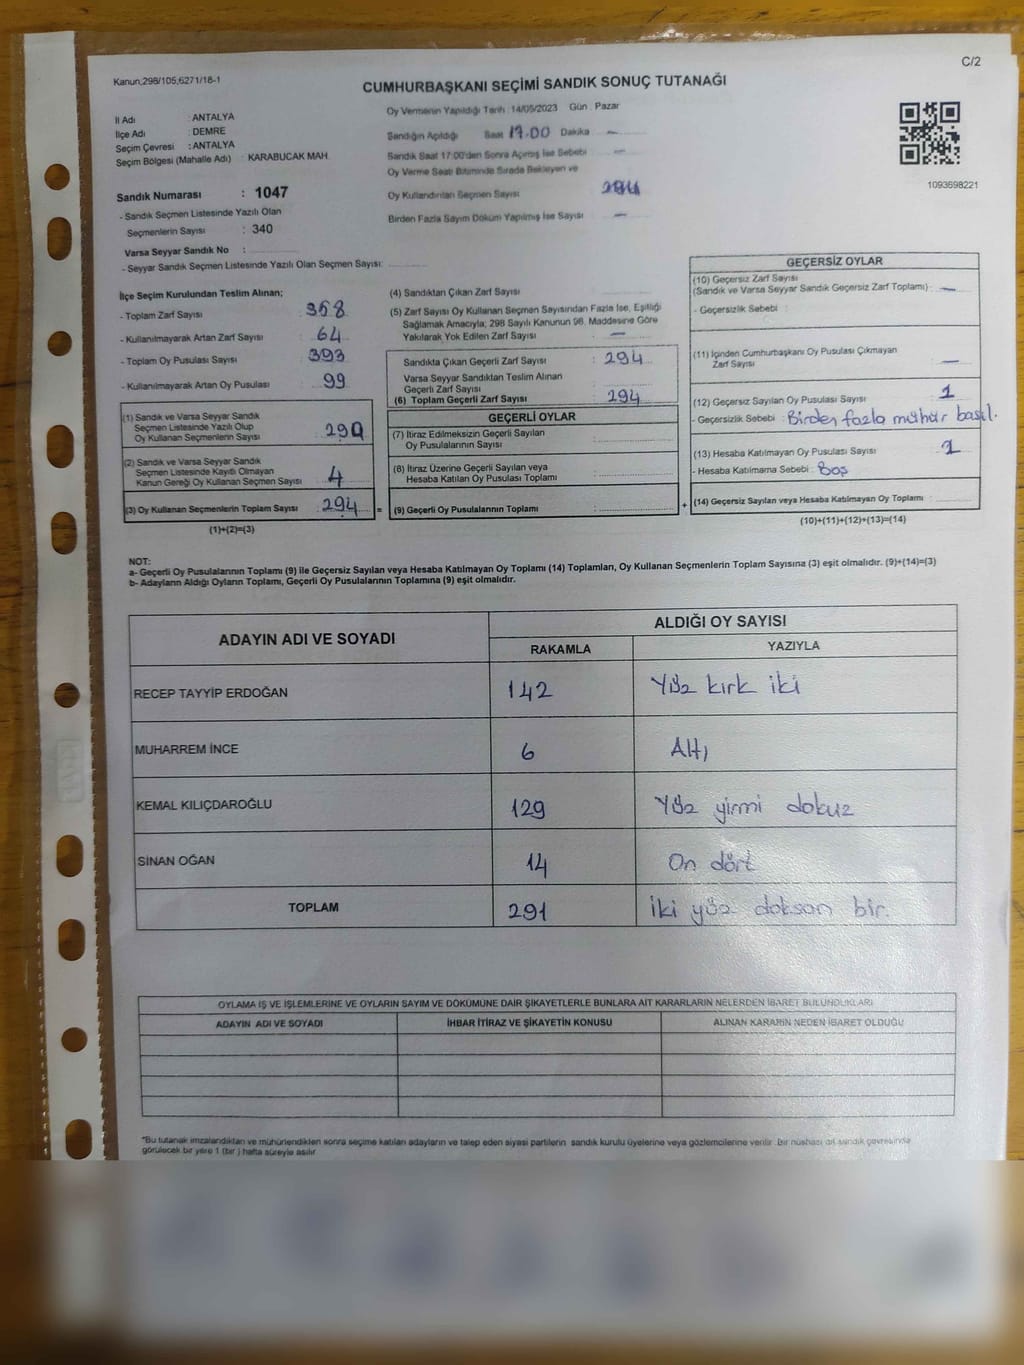 C/2
Kanun;298/105,6271/18-1
CUMHURBAŞKANI SEÇİMİ SANDIK SONUÇ TUTANAĞI
İl Adı : ANTALYA
İlçe Adı : DEMRE
Seçim Çevresi : ANTALYA
Seçim Bölgesi (Mahalle Adı) : KARABUCAK MAH.
Sandık Numarası : 1047
- Sandık Seçmen Listesinde Yazılı Olan
Seçmenlerin Sayısı : 340
Varsa Seyyar Sandık No :
- Seyyar Sandık Seçmen Listesinde Yazılı Olan Seçmen Sayısı:
Oy Vermenin Yapıldığı Tarih : 14/05/2023 Gün : Pazar
Sandığın Açıldığı Saat 17.00 Dakika —
Sandık Saat 17:00'den Sonra Açılmış İse Sebebi —
Oy Verme Saati Bitiminde Sırada Bekleyen ve
Oy Kullandırılan Seçmen Sayısı
Birden Fazla Sayım Döküm Yapılmış İse Sayısı —
1093698221
İlçe Seçim Kurulundan Teslim Alınan;
- Toplam Zarf Sayısı : 358
- Kullanılmayarak Artan Zarf Sayısı : 64
- Toplam Oy Pusulası Sayısı : 393
- Kullanılmayarak Artan Oy Pusulası : 99
(1) Sandık ve Varsa Seyyar Sandık
Seçmen Listesinde Yazılı Olup
Oy Kullanan Seçmenlerin Sayısı : 290
(2) Sandık ve Varsa Seyyar Sandık
Seçmen Listesinde Kayıtlı Olmayan
Kanun Gereği Oy Kullanan Seçmen Sayısı : 4
(3) Oy Kullanan Seçmenlerin Toplam Sayısı : 294 =
(1)+(2)=(3)
(4) Sandıktan Çıkan Zarf Sayısı :
(5) Zarf Sayısı Oy Kullanan Seçmen Sayısından Fazla İse, Eşitliği
Sağlamak Amacıyla; 298 Sayılı Kanunun 98. Maddesine Göre
Yakılarak Yok Edilen Zarf Sayısı : —
Sandıkta Çıkan Geçerli Zarf Sayısı : 294
Varsa Seyyar Sandıktan Teslim Alınan
Geçerli Zarf Sayısı :
(6) Toplam Geçerli Zarf Sayısı : 294
GEÇERLİ OYLAR
(7) İtiraz Edilmeksizin Geçerli Sayılan
Oy Pusulalarının Sayısı :
(8) İtiraz Üzerine Geçerli Sayılan veya
Hesaba Katılan Oy Pusulası Toplamı :
(9) Geçerli Oy Pusulalarının Toplamı : +
GEÇERSİZ OYLAR
(10) Geçersiz Zarf Sayısı
(Sandık ve Varsa Seyyar Sandık Geçersiz Zarf Toplamı) : —
- Geçersizlik Sebebi :
(11) İçinden Cumhurbaşkanı Oy Pusulası Çıkmayan
Zarf Sayısı : —
(12) Geçersiz Sayılan Oy Pusulası Sayısı : 1
- Geçersizlik Sebebi : Birden fazla mühür basıl.
(13) Hesaba Katılmayan Oy Pusulası Sayısı : 1
- Hesaba Katılmama Sebebi : Boş
(14) Geçersiz Sayılan veya Hesaba Katılmayan Oy Toplamı :
(10)+(11)+(12)+(13)=(14)
NOT:
a- Geçerli Oy Pusulalarının Toplamı (9) ile Geçersiz Sayılan veya Hesaba Katılmayan Oy Toplamı (14) Toplamları, Oy Kullanan Seçmenlerin Toplam Sayısına (3) eşit olmalıdır. (9)+(14)=(3)
b- Adayların Aldığı Oyların Toplamı, Geçerli Oy Pusulalarının Toplamına (9) eşit olmalıdır.
ADAYIN ADI VE SOYADI
ALDIĞI OY SAYISI
RAKAMLA YAZIYLA
RECEP TAYYİP ERDOĞAN 142 Yüz kırk iki
MUHARREM İNCE 6 Altı
KEMAL KILIÇDAROĞLU 129 Yüz yirmi dokuz
SİNAN OĞAN 14 On dört
TOPLAM 291 İki yüz doksan bir.
OYLAMA İŞ VE İŞLEMLERİNE VE OYLARIN SAYIM VE DÖKÜMÜNE DAİR ŞİKAYETLERLE BUNLARA AİT KARARLARIN NELERDEN İBARET BULUNDUKLARI
ADAYIN ADI VE SOYADI İHBAR İTİRAZ VE ŞİKAYETİN KONUSU ALINAN KARARIN NEDEN İBARET OLDUĞU
*Bu tutanak imzalandıktan ve mühürlendikten sonra seçime katılan adayların ve talep eden siyasi partilerin sandık kurulu üyelerine veya gözlemcilerine verilir. Bir nüshası da sandık çevresinde
görülecek bir yere 1 (bir) hafta süreyle asılır.